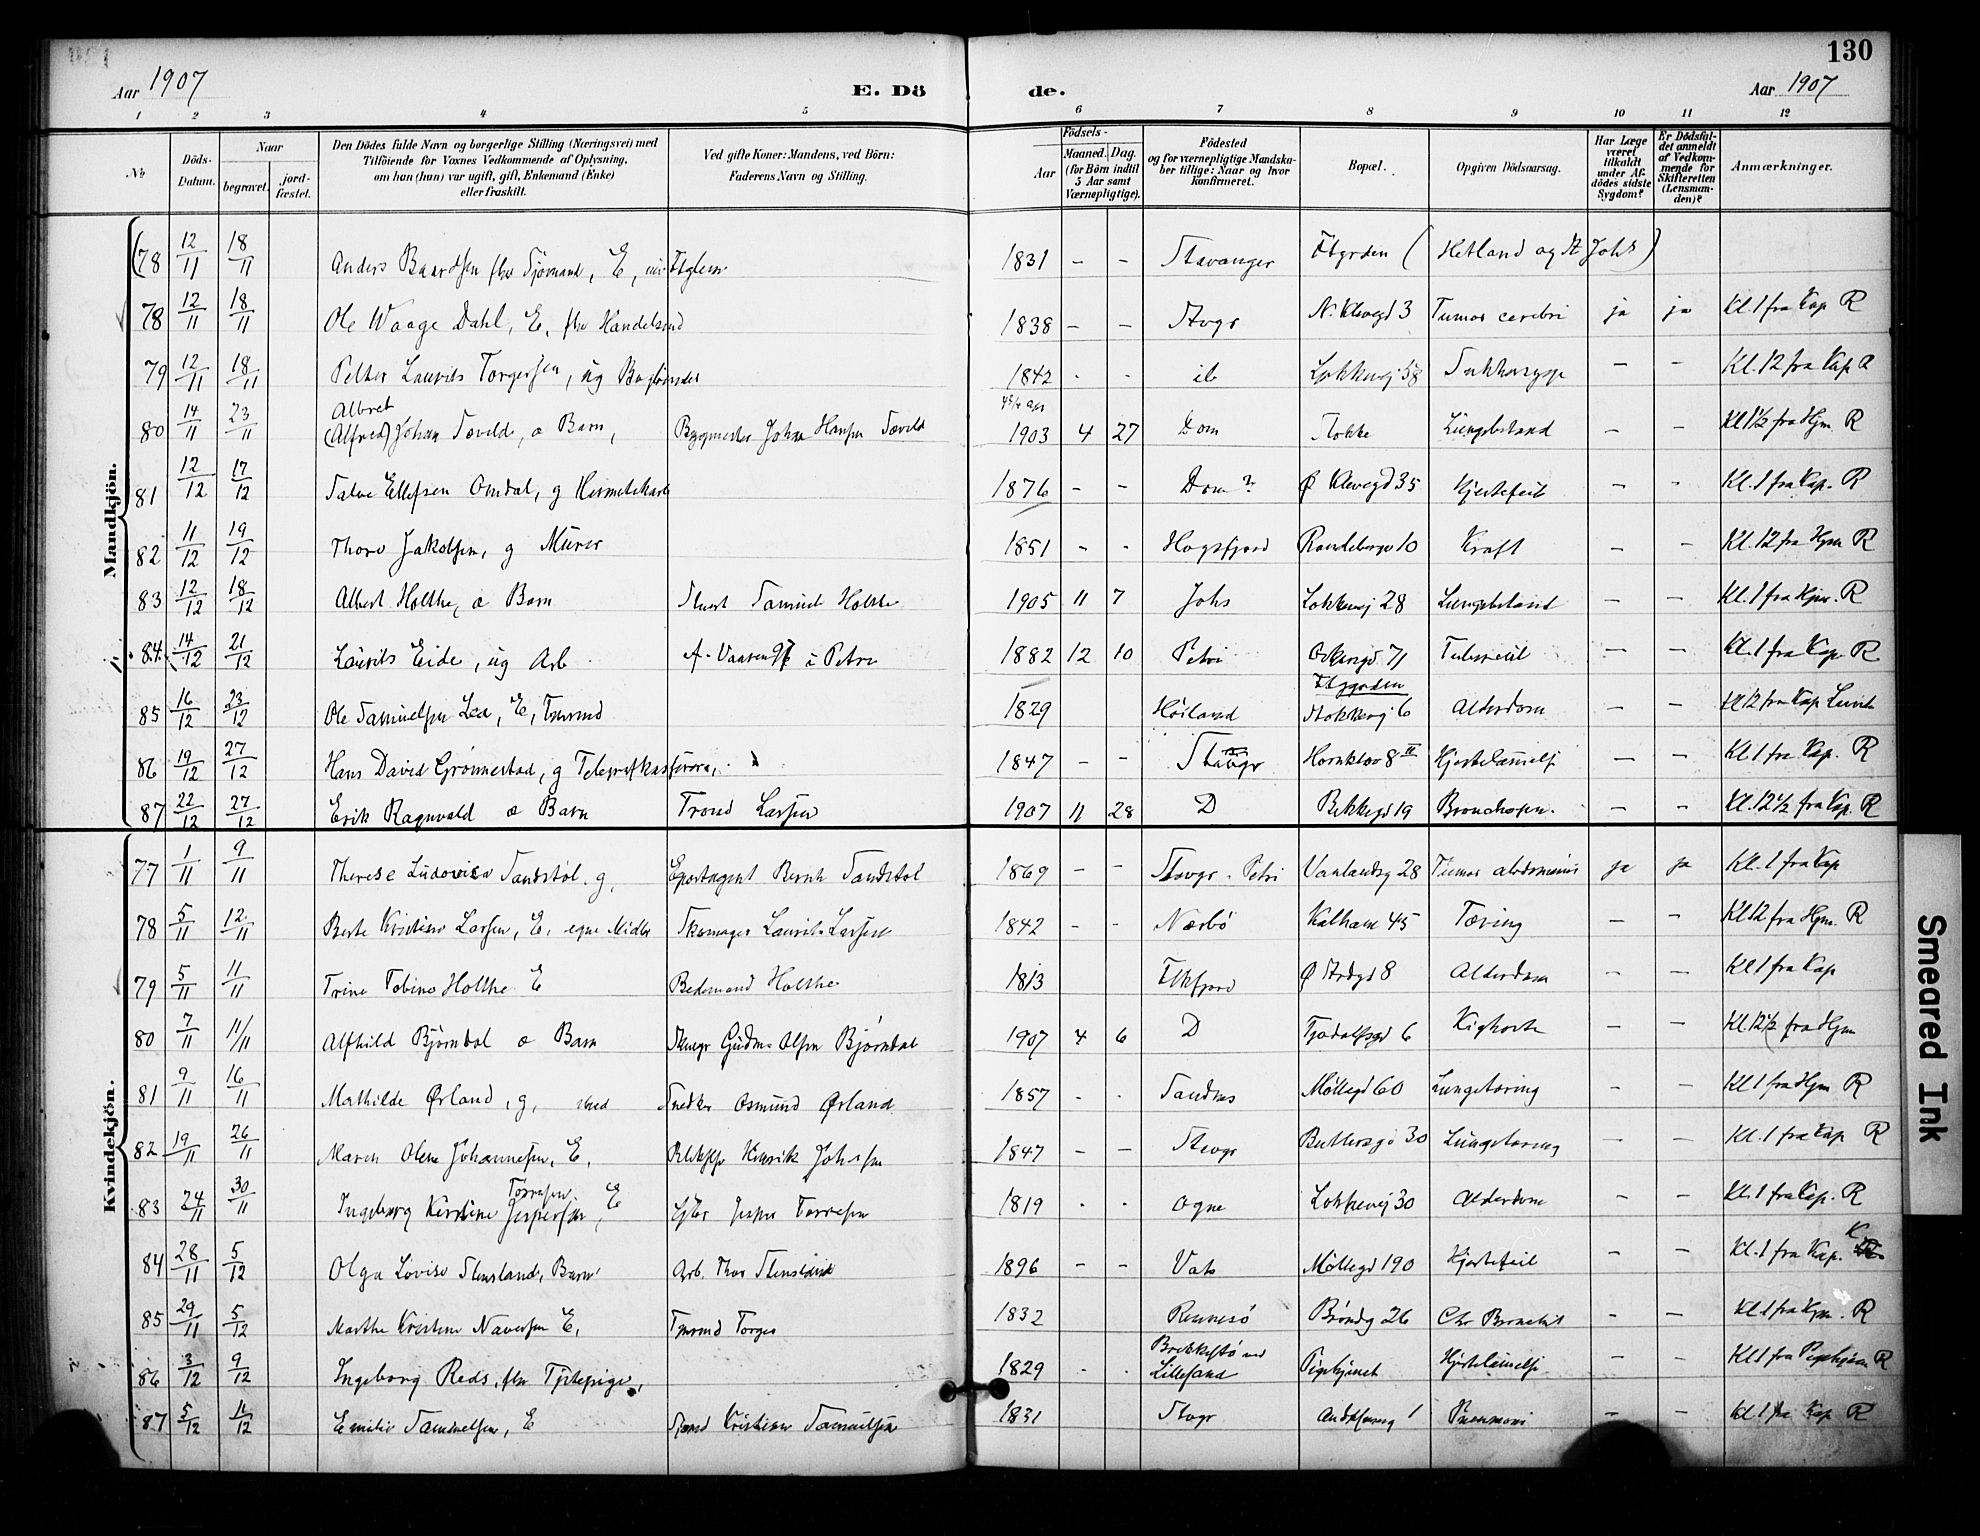 130
Aar 1907
E. Döde.
Aar 1907
1 2 3 4 5 6 7 8 9 10 11 12
No
Döds-Datum.
Naar begravet. jordfæstet.
Den Dödes fulde Navn og borgerlige Stilling (Næringsvei) med
Tilföiende for Voxnes Vedkommende af Oplysning,
om han (hun) var ugift, gift, Enkemand (Enke)
eller fraskilt.
Ved gifte Koner: Mandens, ved Börn:
Faderens Navn og Stilling.
Födsels-
Aar
Maaned. Dag.
(for Börn indtil
5 Aar samt
Værnepligtige).
Födested
og for værnepligtige Mandska-
ber tillige: Naar og hvor
konfirmeret.
Bopæl.
Opgiven Dödsaarsag.
Har Læge
været
tilkaldt
under Af-
dødes sidste
Sygdom?
Er Dødsfal-
det anmeldt
af Vedkom-
mende for
Skifteretten
(Lensman-
den)?
Anmærkninger.
Mandkjön.
(78 12/11 18/11 Anders Baardsen fhv Sjømand, E, 1831 - - Stavanger (Hetland og St Johs)
78 12/11 18/11 Ole Waage Dahl, E, fhv Handelsmd 1838 - - Stvgr N. Klevegd 3 Tumor cerebri ja ja Kl. 1 fra Kap R
79 12/11 18/11 Petter Laurits Torgersen, ug Bogbinder 1842 - - ib Løkkevej 58 - - Kl. 12 fra Kap R
80 14/11 23/11 Albret (Alfred) Johan Tæveld, æ Barn, Bygmester Johan Hansen Tæveld 1903 4 27 Dom Stokke Lungebetænd - - Kl 1½ fra Hjm. R
81 12/12 17/12 Salve Ellefsen Omdal, g Hermetikarb 1876 - - Dom? Ø Klevegd 35 Hjertefeil - - Kl. 1 fra Kap. R
82 11/12 19/12 Thore Jakobsen, g Murer 1851 - - Høgsfjord Randebergv 10 Kræft - - Kl. 12 fra Hjm R
83 12/12 18/12 Albert Holthe, æ Barn Stuert Samuel Holthe 1905 11 7 Johs Løkkevej 28 Lungebetænd - - Kl. 1 fra Hjm. R
84. 14/12 21/12 Laurits Eide, ug Arb 1882 12 10 Petri 71 - - Kl. 1 fra Kap R
85 16/12 23/12 Ole Samuelsen Lea, E, 1829 Høiland Stokkevj 6 Alderdom - - Kl 12 fra Kap
86 19/12 27/12 Hans David Grønnestad, g Telegrafkasserer, 1847 - - Stavgr Hornklov 8 II Hjertelamelse - - Kl. 1 fra Kap. R
87 22/12 27/12 Erik Ragnvald æ Barn Trond Larsen 1907 11 28 D Bekkegd 19 - - Kl. 12½ fra Kap. R
Kvindekjön.
77 1/11 9/11 Therese Ludovica Sandstøl, g, Bernh Sandstøl 1869 - - Stavgr. Petri Vaalandsg 28 Tumor abdominis ja ja Kl. 1 fra Kap
78 5/11 12/11 Berte Kristine Larsen, E, egne Midler Skomager Laurits Larsen 1842 - - Nærbö Kalham 45 Tæring - - Kl 12 fra Hjm. R
79 5/11 11/11 Trine Tobine Holthe E Bedemand Holthe 1813 Ø Strdgd 8 Alderdom - - Kl 1 fra Kap
80 7/11 11/11 Alfhild Bjørndal æ Barn Gudm. Olsen Bjørndal 1907 4 6 D Tjodolfsgd 6 Kighoste - - Kl 12½ fra Hjm
81 9/11 16/11 Mathilde Ørland, g, med Snedker Osmund Ørland 1857 - - Sandnes Møllegd 60 Lungetæring - - Kl 1 fra Hjm R
82 19/11 26/11 Maren Olene Johannesen, E, Henrik Johnsen 1847 - - Stavgr 30 Lungetæring - - Kl. 1 fra Kap R
83 24/11 30/11 Ingeborg Kirstine Jespersen, Torresen E Jesper Torresen 1819 - - Ogne Løkkevej 30 Alderdom - - Kl. 1 fra Kap. R
84 28/11 5/12 Olga Lovise Stensland, Barn Arb. Thor Stensland 1896 - - Vats Møllegd 190 Hjertefeil - - Kl. 1 fra Kap. K
85 29/11 5/12 Marthe Kristine Naversen E, Torger 1832 Rennesö Brøndg 26 Chr Bronchit - - Kl 1 fra Hjm. R
86 3/12 9/12 Ingeborg Reds, fhv Tjenstepige, 1829 - - Brekkestø ved Lillesand Pigehjemet Hjertelamelse - - Kl 1 fra Pigehjem R
87 5/12 11/12 Emilie Samuelsen, E Sjømd Kristian Samuelsen 1831 Stavgr 1 Pneumoni - - Kl. 1 fra Kap R
Smeared Ink